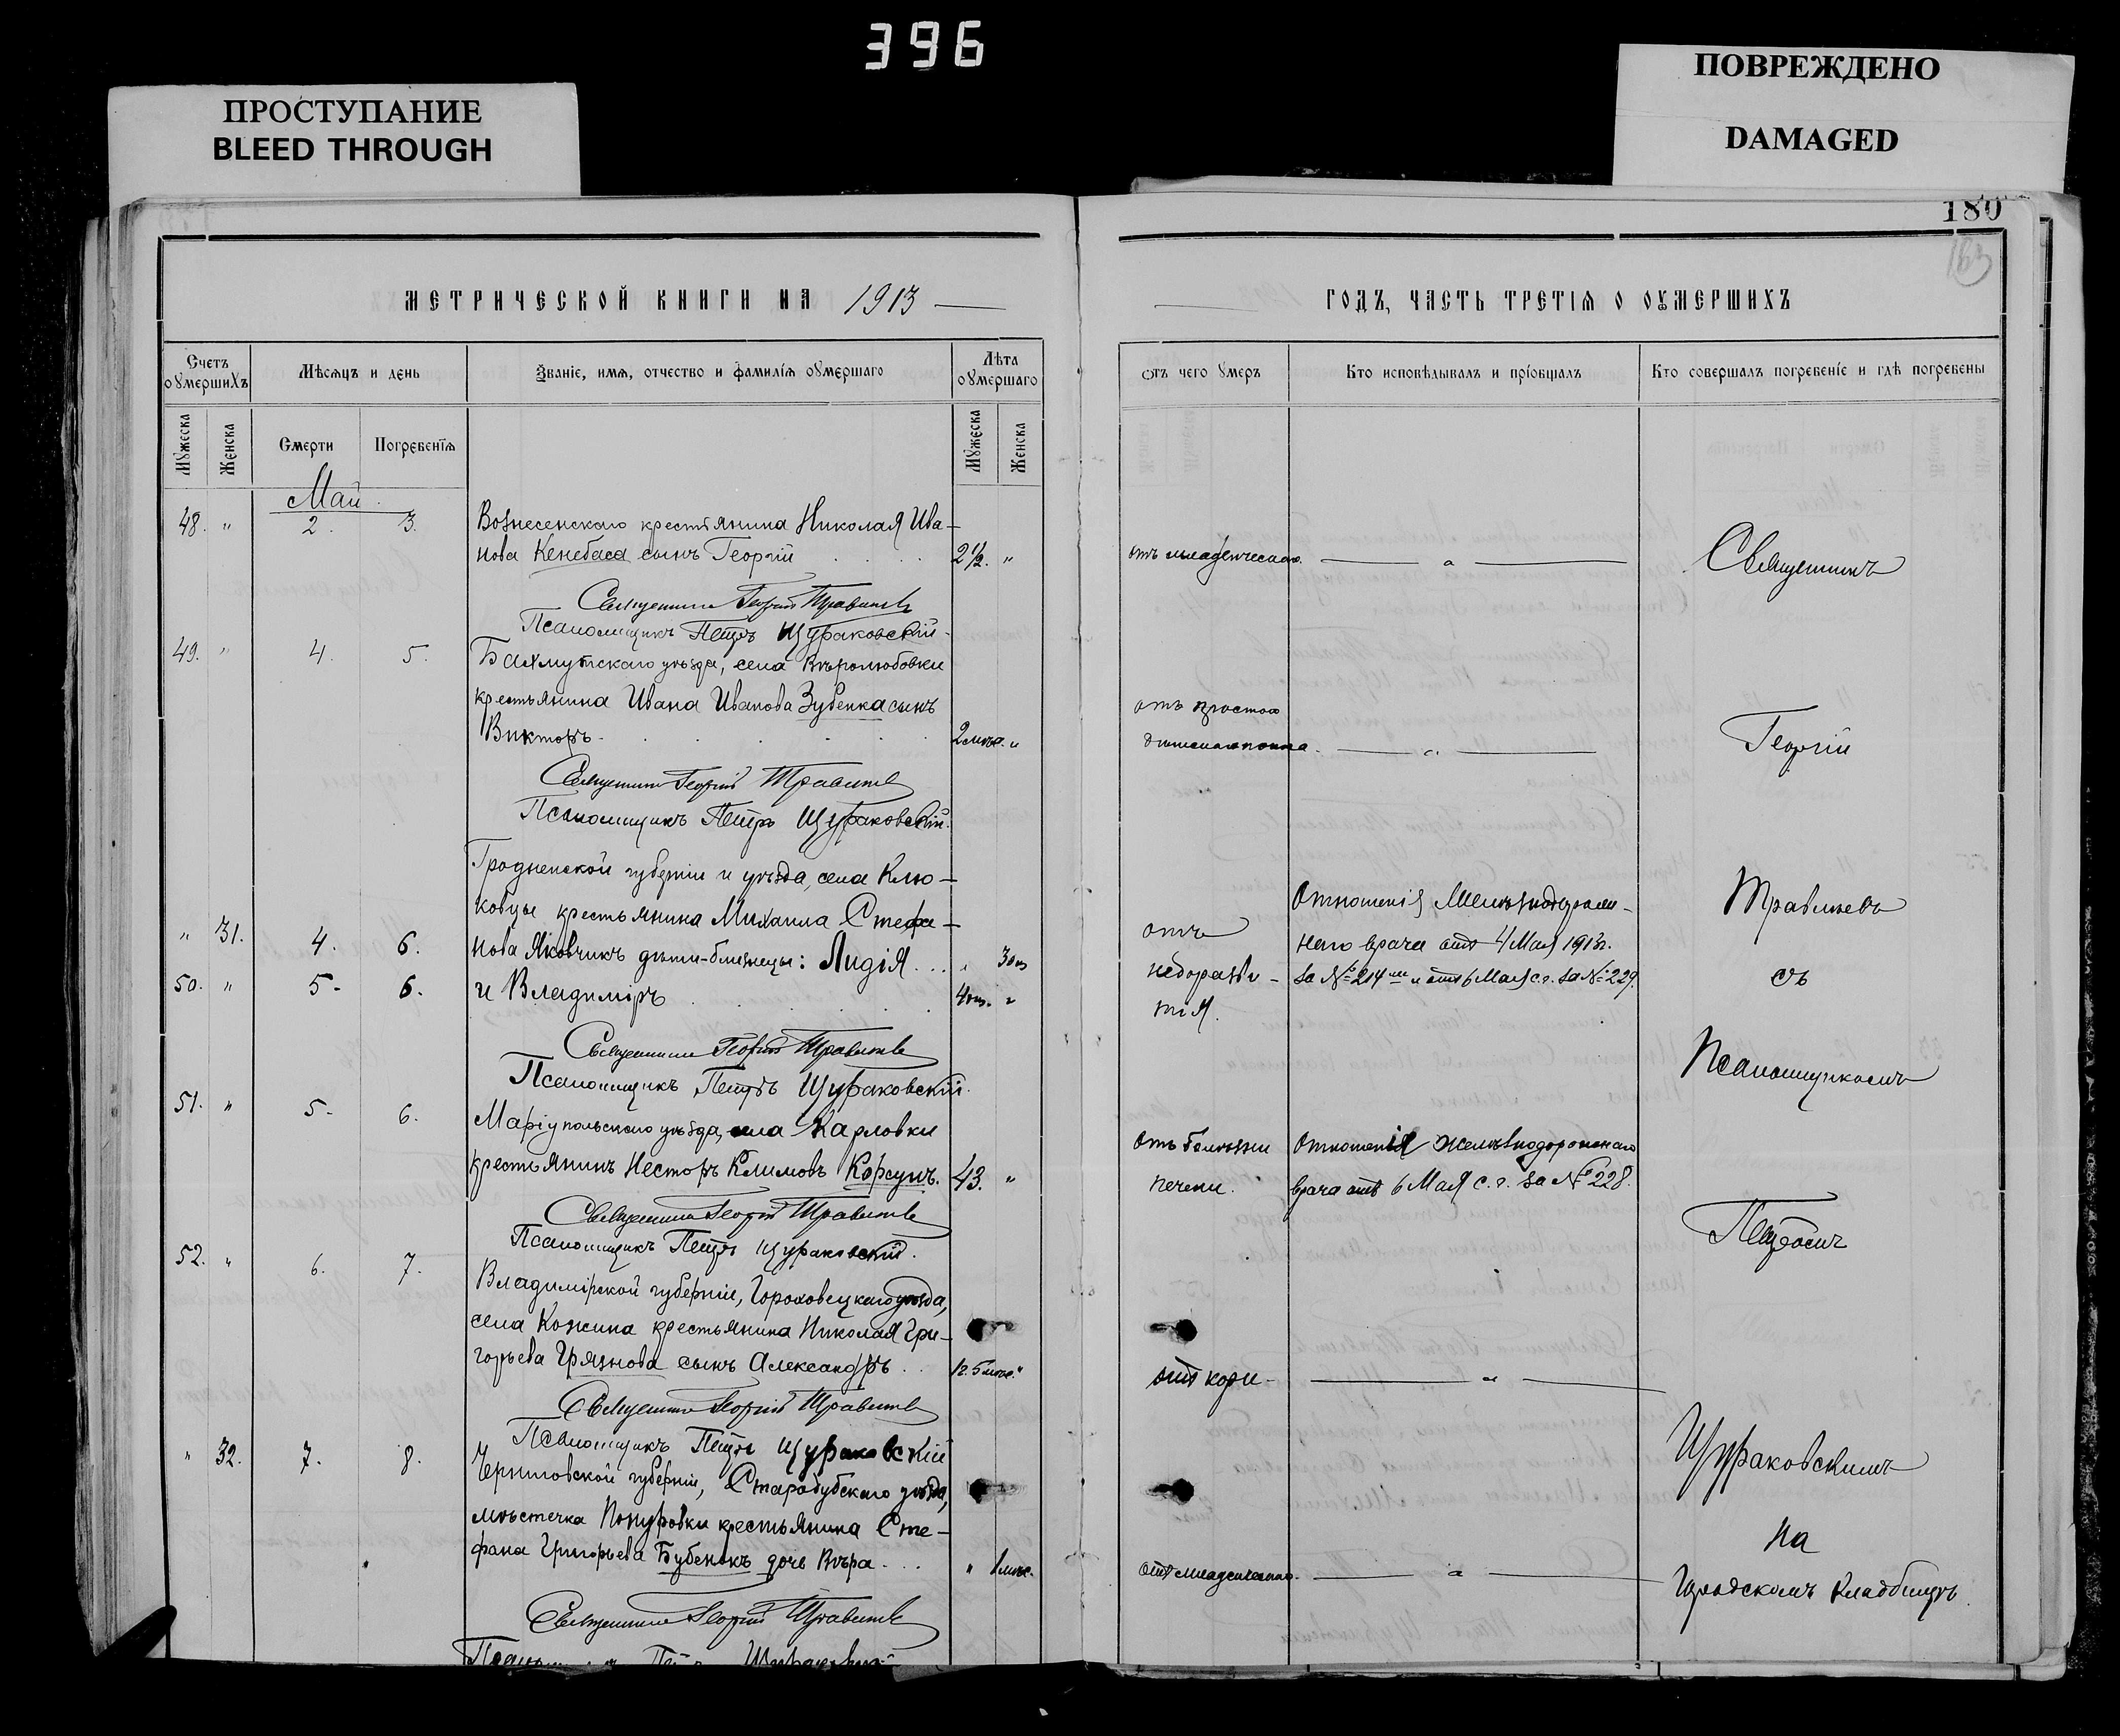 396
ПРОСТУПАНИЕ
BLEED THROUGH
ПОВРЕЖДЕНО
DAMAGED
180
163
МЕТРИЧЕСКОЙ КНИГИ НА 1913
Счетъ оумершихъ
Мѣсяцъ и день
Званіе, имя, отчество и фамилія оумершаго
Лѣта оумершаго
Мужеска
Женска
Смерти
Погребенія
Мужеска
Женска
Май
48. " 2. 3. Вознесенскаго крестьянина Николая Ива-
нова Кенебаса сынъ Георгій 2 1/2. "
Священникъ Георгій Травлѣевъ
Псаломщикъ Петръ Щураковскій.
49. " 4. 5. Бахмутскаго уѣзда, села Вѣролюбовки
крестьянина Ивана Иванова Зубенка сынъ
Викторъ 2 мѣс. "
Священникъ Георгій Травлѣевъ
Псаломщикъ Петръ Щураковскій.
Гродненской губерніи и уѣзда, села Клю-
ковцы крестьянина Михаила Стефа-
" 31. 4. 6. нова Яковчикъ дѣти-близнецы: Лидія " 3
50. " 5. 6. и Владиміръ 4 "
Священникъ Георгій Травлѣевъ
Псаломщикъ Петръ Щураковскій.
51. " 5. 6. Маріупольскаго уѣзда, села Карловки
крестьянинъ Несторъ Климовъ Корсунъ. 43. "
Священникъ Георгій Травлѣевъ
Псаломщикъ Петръ Щураковскій.
52. " 6. 7. Владимірской губерніи, Гороховецкаго уѣзда,
села Кожина крестьянина Николая Гри-
горьева Грязнова сынъ Александръ 1 г. 5 мѣс. "
Священникъ Георгій Травлѣевъ
Псаломщикъ Петръ Щураковскій
" 32. 7. 8. Черниговской губерніи, Стародубскаго уѣзда,
мѣстечка Понуровки крестьянина Сте-
фана Григорьева Бубенокъ дочь Вѣра " 1 мѣс.
Священникъ Георгій Травлѣевъ
Псаломщикъ Петръ Щураковскій
ГОДЪ, ЧАСТЬ ТРЕТІЯ О ОУМЕРШИХЪ
Отъ чего умеръ
Кто исповѣдывалъ и пріобщалъ
Кто совершалъ погребеніе и гдѣ погребены
отъ младенческаго. "
Священникъ
отъ
"
Георгій
отъ
недоразви-
тія.
Отношенія Желѣзнодорож-
наго врача отъ 4 Мая 1913 г.
за № 214 и отъ 6 Мая с. г. за № 229.
Травлѣевъ
съ
Псаломщикомъ
отъ болѣзни
печени.
Отношенія Желѣзнодорожнаго
врача отъ 6 Мая с. г. за № 228.
Петромъ
отъ кори "
Щураковскимъ
на
отъ младенческаго. "
Городскомъ кладбищѣ.